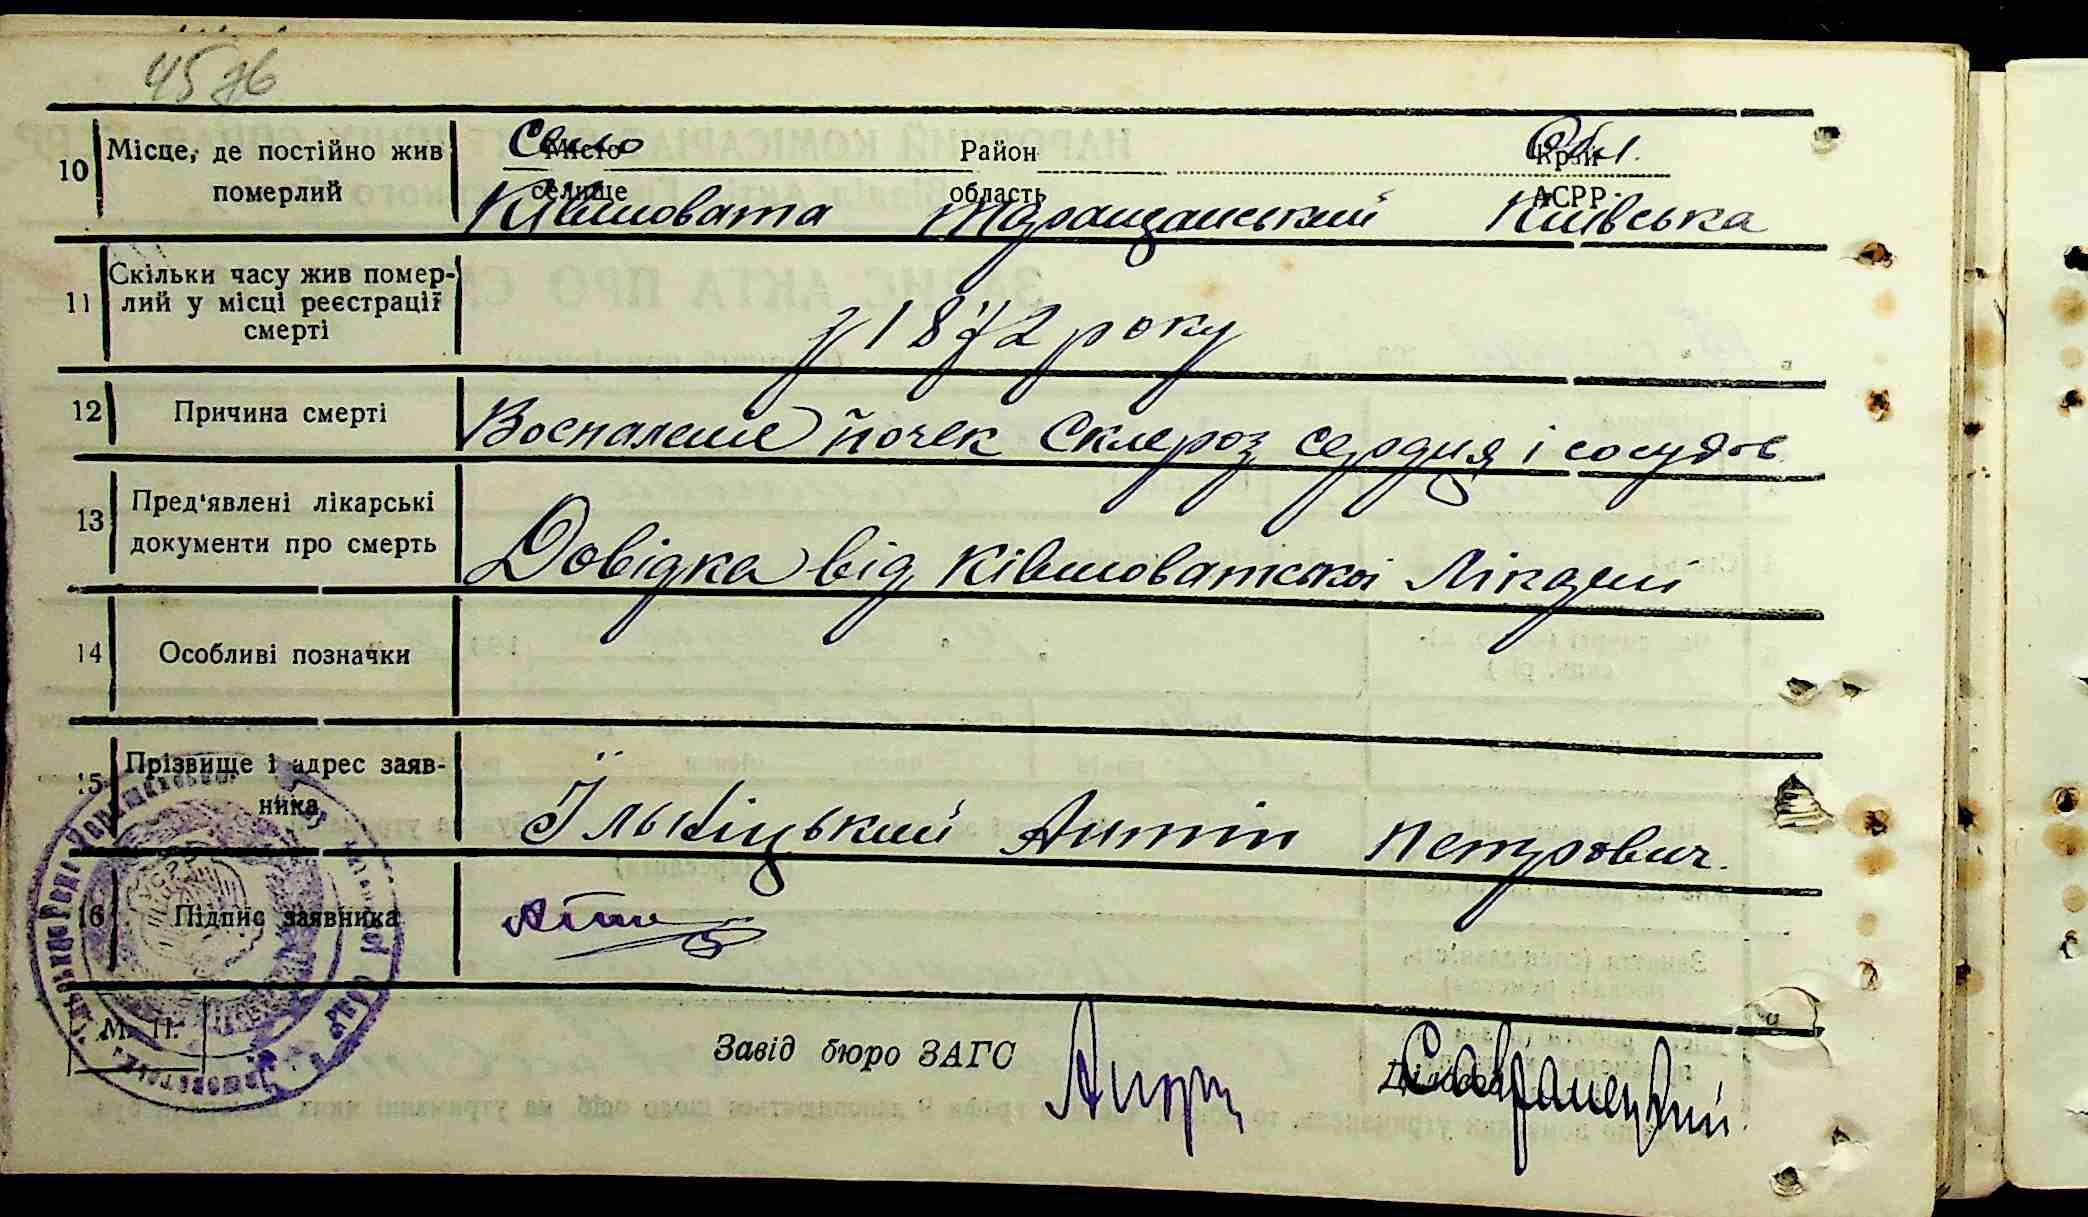 45 зв
10 Місце, де постійно жив померлий
Село Місто Район Обл. Край
селище область АСРР
Ківшовата Таращанський Київська
11 Скільки часу жив помер-
лий у місці реєстрації
смерті
з 1872 року
12 Причина смерті Воспаление почек Склероз сердця і сосудов
13 Пред'явлені лікарські
документи про смерть
Довідка від Ківшоватської Лікарні
14 Особливі позначки
15 Прізвище і адрес заяв-
ника
Ільніцький Антін Петрович.
16 Підпис заявника
УСРР
М. П.
Завід бюро ЗАГС